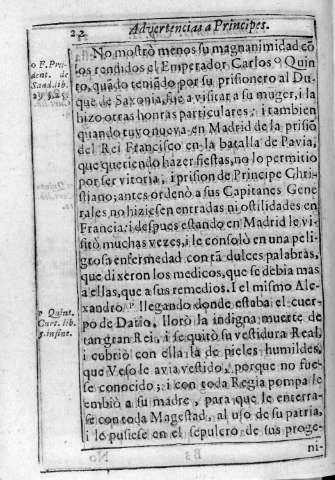 22 Advertencias a Principes.
No mostrò menos su magnanimidad cō
los rendidos el Emperador Carlos Quin
to, quãdo teniẽdo por su prisionero al Du
que de Saxonia, fue a visitar a su muger, i la
hizo otras honras particulares; i tambien
quando tuvo nueva en Madrid de la prisiō
del Rei Francisco en la batalla de Pavia,
que queriendo hazer fiestas, no lo permitio
por ser vitoria, i prision de Principe Chris-
tiano; antes ordenò a sus Capitanes Gene
rales no hiziesen entradas ni ostilidades en
Francia: i despues estando en Madrid le vi-
sitò muchas vezes, i le consolò en una peli-
grosa enfermedad con tã dulces palabras,
que dixeron los medicos, que se debia mas
a ellas, que a sus remedios. I el mismo Ale-
xandro p llegando donde estaba el cuer-
po de Dario, llorò la indigna muerte de
tan gran Rei, i se quitò su vestidura Real,
i cubriò con ella la de pieles humildes,
que Veso le avia vestido, porque no fue-
se conocido; i con toda Regia pompa le
embiò a su madre, para que le enterra-
se con toda Magestad, al uso de su patria,
i le pusiese en el sepulcro de sus proge-
ni-
o F. Pru-
dent. de
Sand. lib.
p Quint.
Curt. lib.
5. in fine.